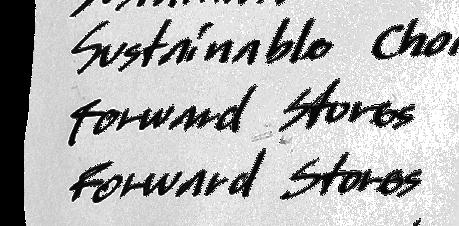 Sustainable
Forward Stores
Forward Stores